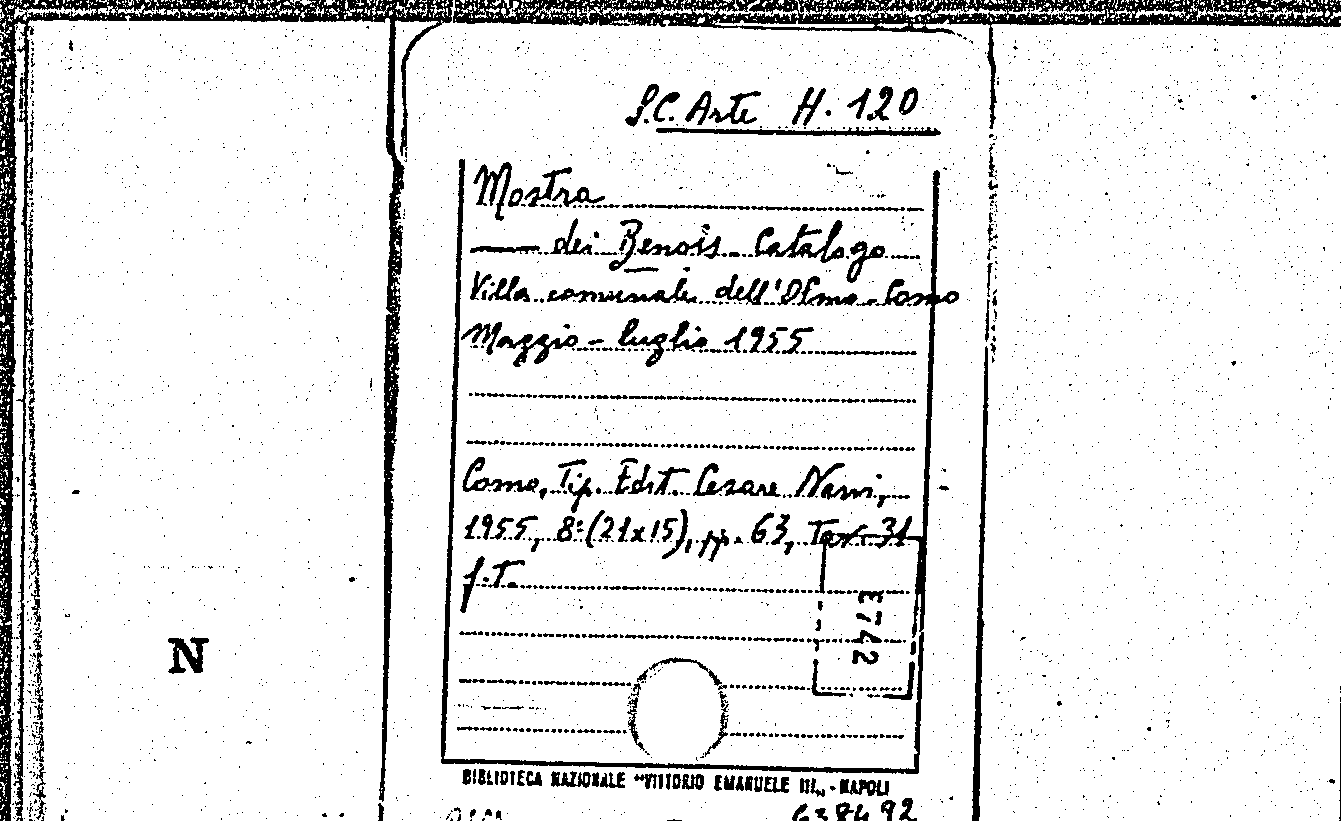 S.C. Arte H. 120
Mostra
—— dei Benois - Catalogo
Villa comunale dell'Olmo - Como
Maggio - luglio 1955
Como, Tip. Edit. Cesare Nani,
1955, 8º (21x15), pp. 63, Tav. 31
f.T.
E742
N
BIBLIOTECA NAZIONALE "VITTORIO EMANUELE III„ - NAPOLI
638492